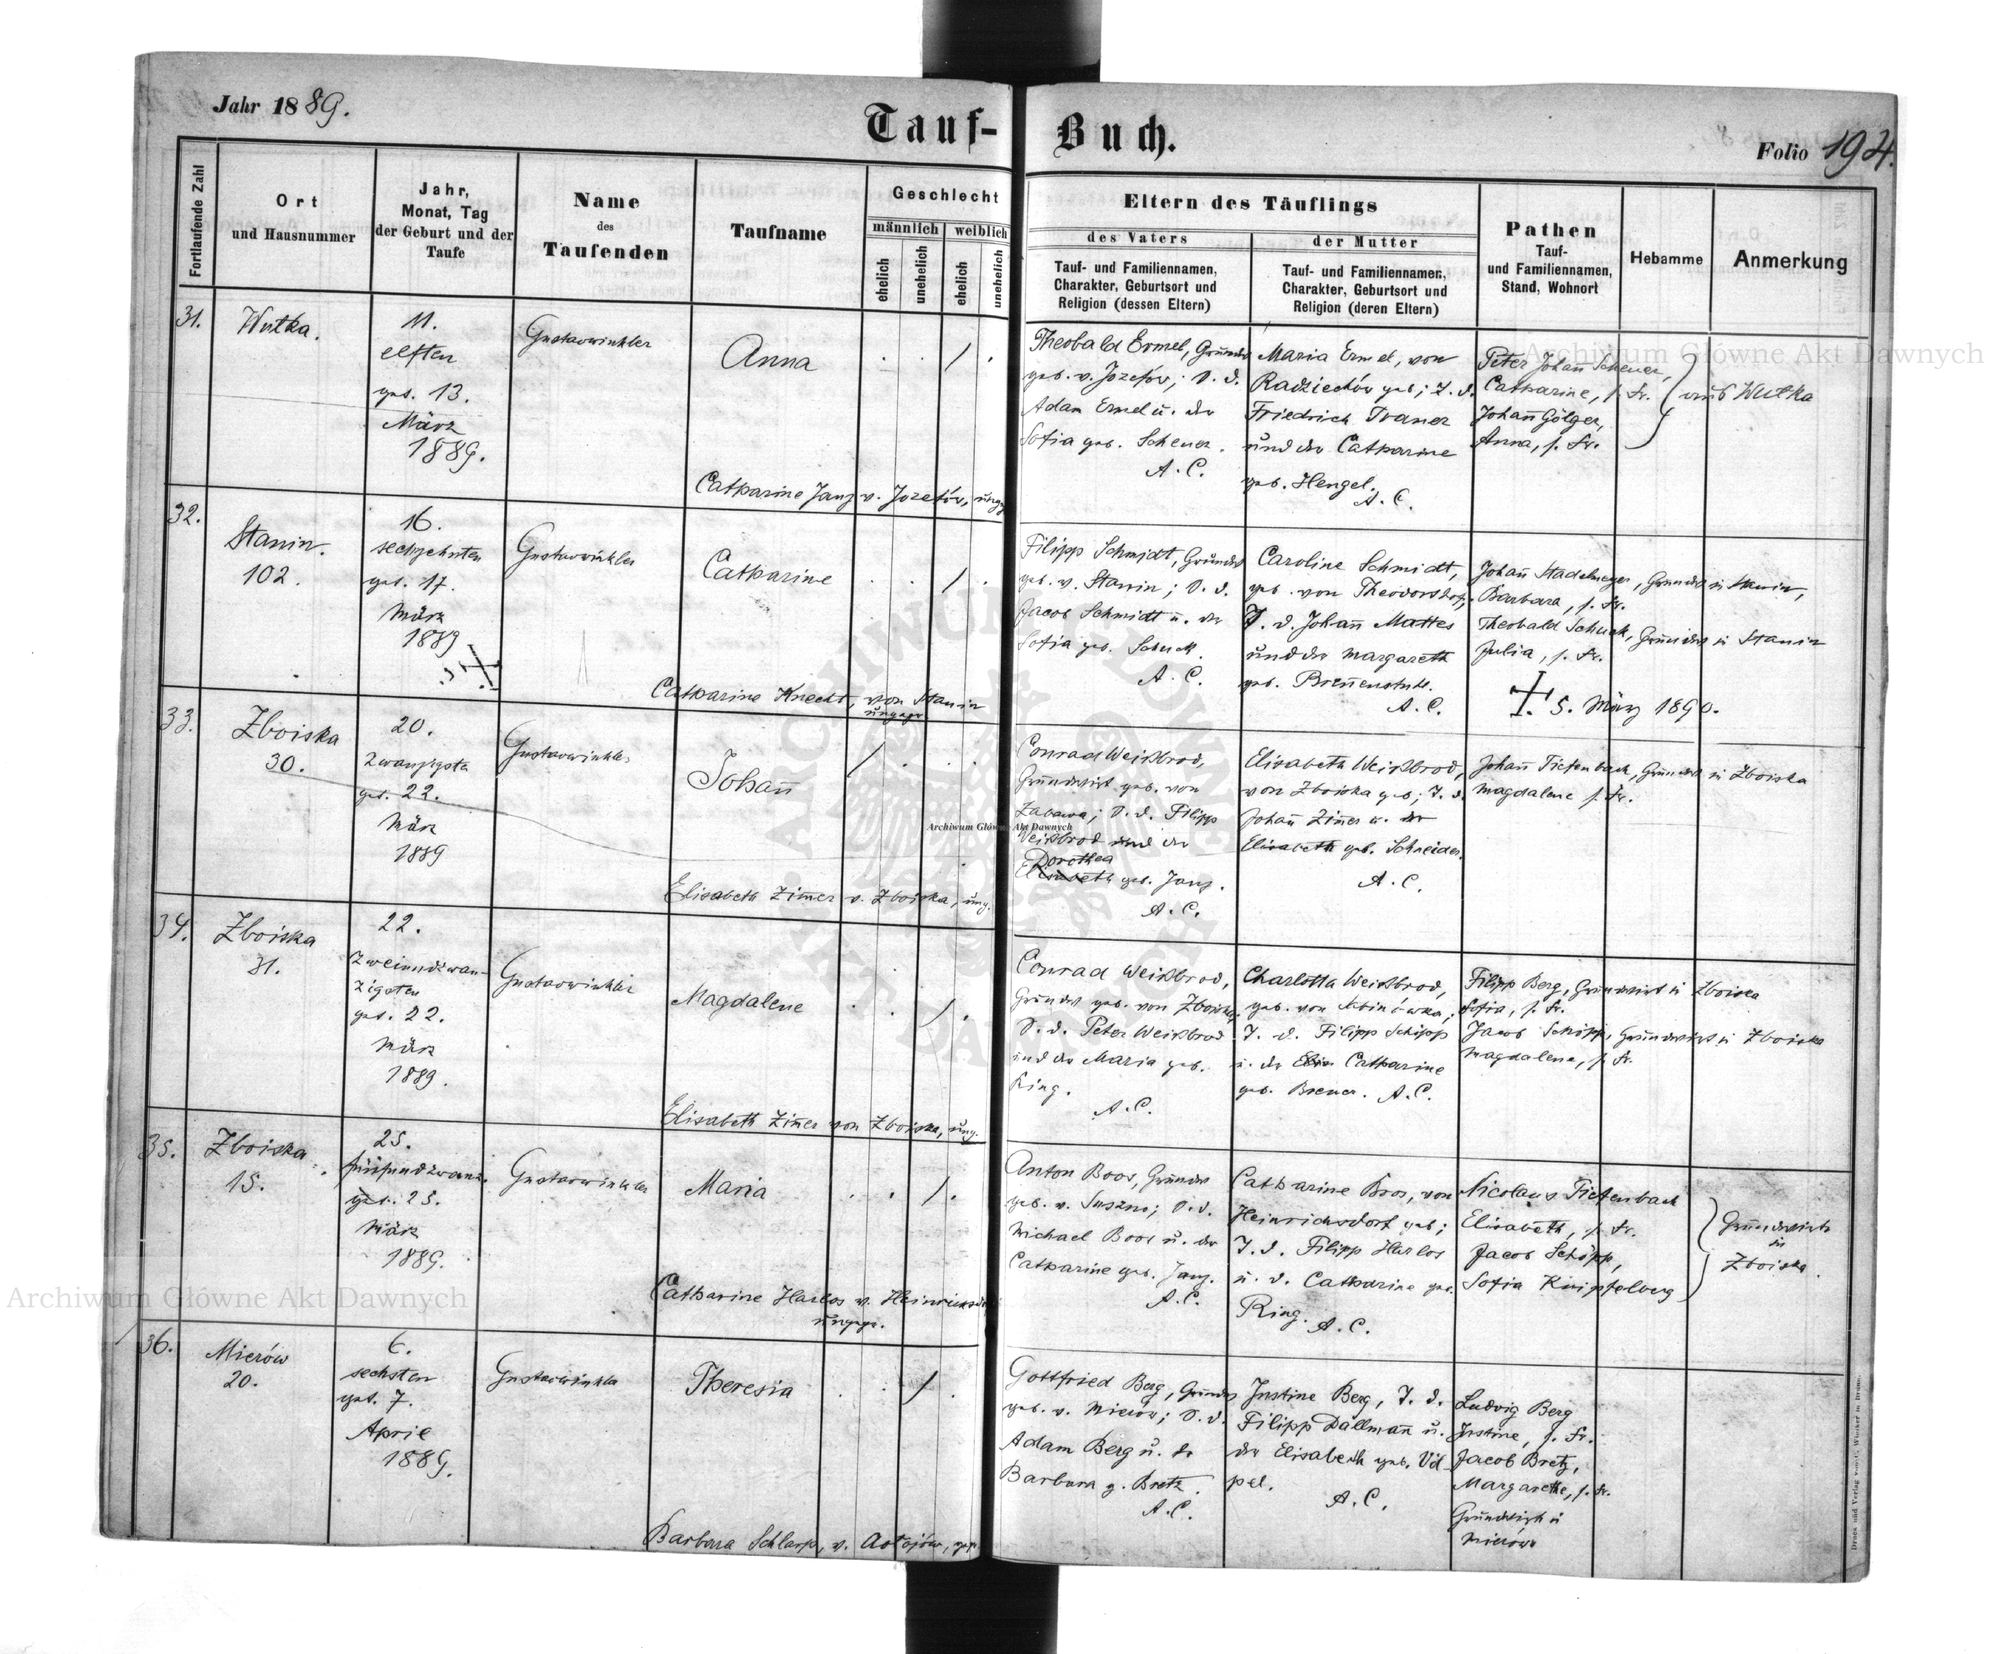 Jahr 1889.
Tauf-Buch.
Folio 194.
Fortlaufende Zahl
Ort
und Hausnummer
Jahr,
Monat, Tag
der Geburt und der
Taufe
Name
des
Taufenden
Taufname
Geschlecht
männlich
weiblich
ehelich
unehelich
ehelich
unehelich
Eltern des Täuflings
des Vaters
Tauf- und Familiennamen,
Charakter, Geburtsort und
Religion (dessen Eltern)
der Mutter
Tauf- und Familiennamen,
Charakter, Geburtsort und
Religion (deren Eltern)
Pathen
Tauf-
und Familiennamen,
Stand, Wohnort
Hebamme
Anmerkung
31.
Wulka.
11.
elften
get. 13.
März
1889.
Gustav Winkler
Anna
Catharine Janz v. Jozefów, ungep.
Theobald Ermel, Grundw
geb. v. Jozefów; S. d.
Adam Ermel u. der
Sofia geb. Scheuer.
A. C.
Maria Ermel, von
Radziechów geb; T. d.
Friedrich Traner
und der Catharine
geb. Hengel.
A. C.
Peter Johañ Scheuer,
Catharine, s. Fr.
Johañ Gölger,
Anna, s. Fr.
aus Wulka
32.
Stanin.
102.
16.
sechzehnten
get. 17.
März
1889
Gustav Winkler
Catharine
Catharine Knecht, von Stanin
ungepr
Filipp Schmidt, Grundw
geb. v. Stanin; S. d.
Jacob Schmidt u. der
Sofia geb. Schuck.
A. C.
Caroline Schmidt,
geb. von Theodorshof;
T. d. Johañ Mattes
und der Margareth
geb. Breñenstuhl.
A. C.
Johañ Stadelmeyer, Grundw in Stanin,
Barbara, s. Fr.
Theobald Schuck, Grundw in Stanin
Julia, s. Fr.
5. März 1890.
33.
Zboiska
30.
20.
zwanzigsten
get. 22.
März
1889
Gustav Winkler
Johañ
Elisabeth Zim̃er v. Zboiska, ung.
Conrad Weißbrod,
Grundwirt geb. von
Zabawa; S. d. Filipp
Weißbrod und der
Dorothea
Elisabeth geb. Janz.
A. C.
Elisabeth Weißbrod,
von Zboiska geb; T. d.
Johañ Zim̃er u. der
Elisabeth geb. Schneider.
A. C.
Johañ Tiefenbach, Grundw in Zboiska
Magdalene s. Fr.
34.
Zboiska
31.
22.
zweiundzwan-
zigsten
get. 22.
März
1889.
Gustav Winkler
Magdalene
Elisabeth Zim̃er von Zboiska, ung.
Conrad Weißbrod,
Grundw geb. von Zboiska;
S. d. Peter Weißbrod
und der Maria geb.
Ring.
A. C.
Charlotta Weißbrod,
geb. von Sabinówka;
T. d. Filipp Schöpp
u. der Catharine
geb. Brener. A. C.
Filipp Berg, Grundwirt in Zboiska
Sofia, s. Fr.
Jacob Schöpp, Grundwirt in Zboiska
Magdalene, s. Fr.
35.
Zboiska
15.
25.
get. 25.
März
1889.
Gustav Winkler
Maria
Catharine Harlos v. Heinrichsdorf
ungepr.
Anton Boos, Grundw
geb. v. Suszno; S. d.
Michael Boos u. der
Catharine geb. Janz.
A. C.
Catharine Boos, von
Heinrichsdorf geb;
T. d. Filipp Harlos
u. d. Catharine geb.
Ring. A. C.
Nicolaus Tiefenbach
Elisabeth, s. Fr.
Jacob Schöpp,
Sofia Knipfelberg
Grundwirte
in
Zboiska.
36.
Mierów
20.
6.
sechsten
get. 7.
April
1889.
Gustav Winkler
Theresia
Barbara Schlarp, v. Antojów, gepr
Gottfried Berg, Grundw
geb. v. Mierów; S. d.
Adam Berg u. der
Barbara g. Bretz.
A. C.
Justine Berg, T. d.
Filipp Dallmañ u.
der Elisabeth geb. Völ-
pel.
A. C.
Ludvig Berg
Justine, s. Fr.
Jacob Bretz,
Margarethe, s. Fr.
Grundwirth in
Mierów
Archiwum Główne Akt Dawnych
Archiwum Główne Akt Dawnych
Archiwum Główne Akt Dawnych